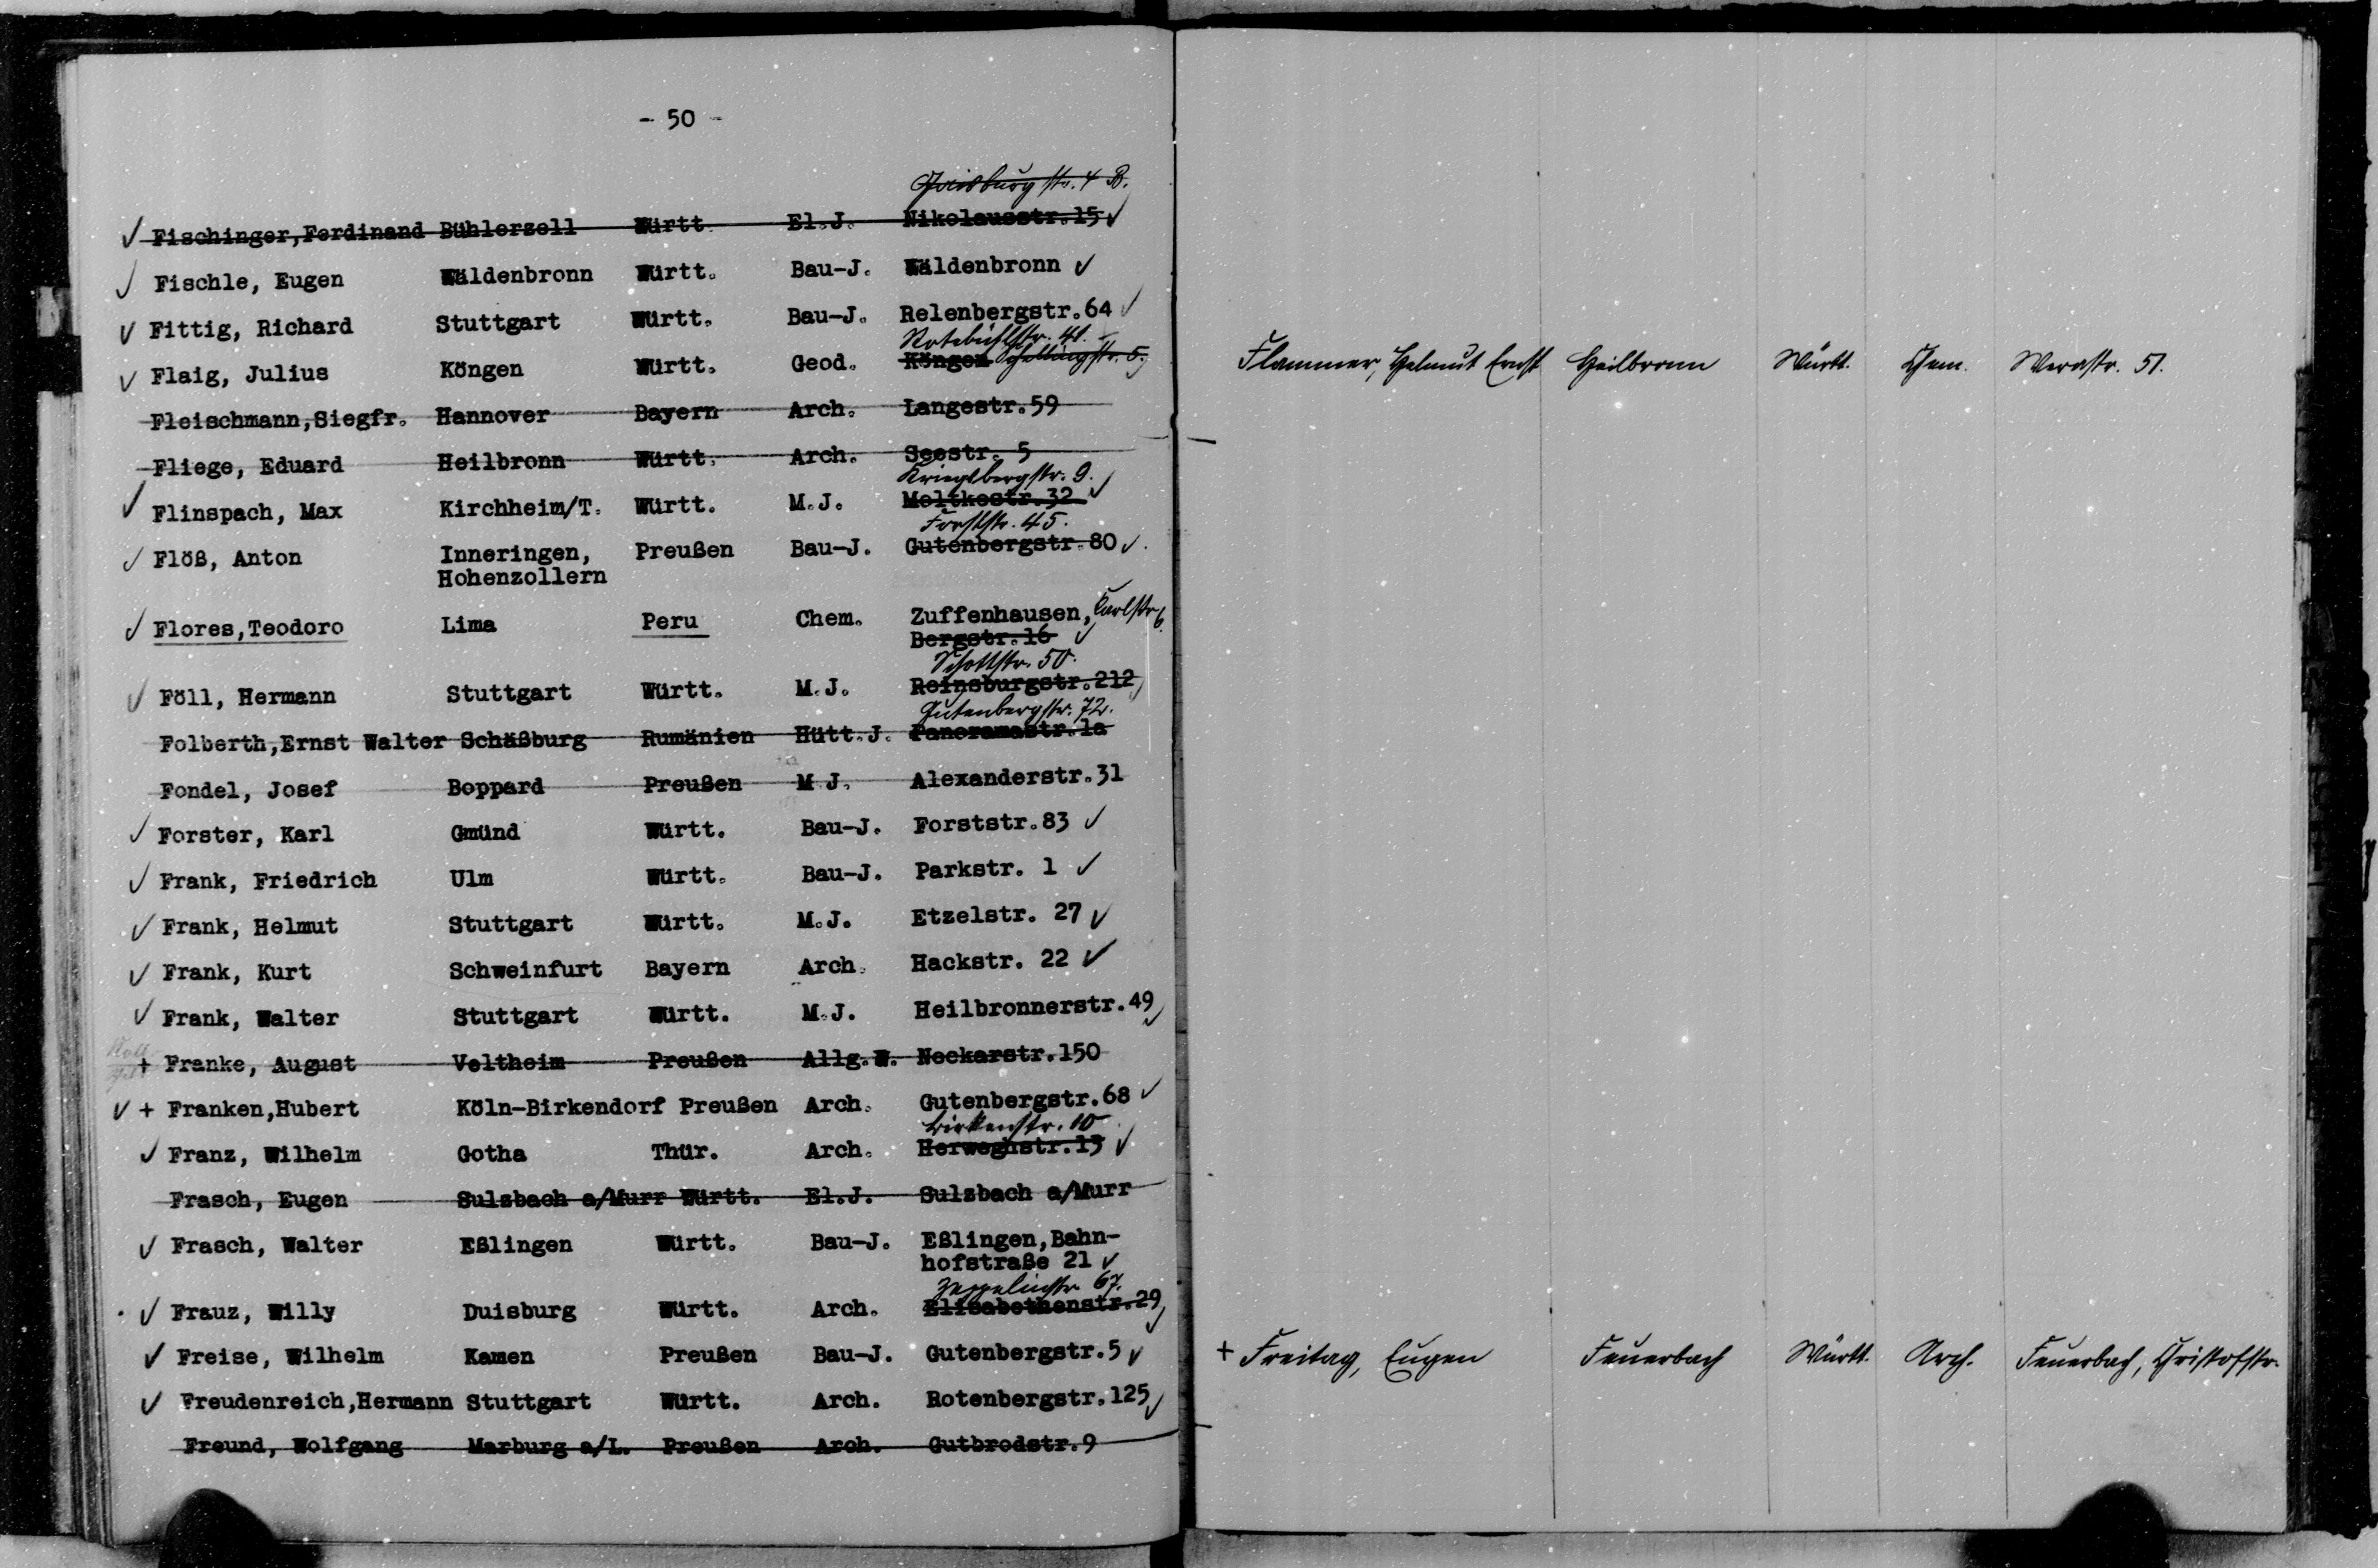 - 50 -
Gaisburgstr. 4 B.
Fischinger,Ferdinand Bühlerzell Württ. El.J. Nikolausstr.15
Fischle, Eugen Wäldenbronn Württ. Bau-J. Wäldenbronn
Fittig, Richard Stuttgart Württ. Bau-J. Relenbergstr.64
Rotebühlstr. 41.
Flaig, Julius Köngen Württ. Geod. Köngen Schellingstr. 5.
Fleischmann,Siegfr. Hannover Bayern Arch. Langestr.59
Fliege, Eduard Heilbronn Württ. Arch. Seestr. 5
Krieglbergstr. 9.
Flinspach, Max Kirchheim/T. Württ. M.J. Moltkestr.32
Forststr. 45.
Flöß, Anton Inneringen, Preußen Bau-J. Gutenbergstr.80
Hohenzollern
Flores,Teodoro Lima Peru Chem. Zuffenhausen, Karlstr. 6.
Bergstr.16
Schottstr. 50.
Föll, Hermann Stuttgart Württ. M.J. Reinsburgstr.212
Gutenbergstr. 72.
Folberth,Ernst Walter Schäßburg Rumänien Hütt.J. Panoramastr.1a
Fondel, Josef Boppard Preußen M J. Alexanderstr.31
Forster, Karl Gmünd Württ. Bau-J. Forststr.83
Frank, Friedrich Ulm Württ. Bau-J. Parkstr. 1
Frank, Helmut Stuttgart Württ. M.J. Etzelstr. 27
Frank, Kurt Schweinfurt Bayern Arch. Hackstr. 22
Frank, Walter Stuttgart Württ. M.J. Heilbronnerstr.49
+ Franke, August Veltheim Preußen Allg.W. Neckarstr.150
+ Franken,Hubert Köln-Birkendorf Preußen Arch. Gutenbergstr.68
Birkenstr. 10
Franz, Wilhelm Gotha Thür. Arch. Herweghstr.13
Frasch, Eugen Sulzbach a/Murr Württ. El.J. Sulzbach a/Murr
Frasch, Walter Eßlingen Württ. Bau-J. Eßlingen,Bahn-
hofstraße 21
Zeppelinstr. 67.
Frauz, Willy Duisburg Württ. Arch. Elisabethenstr.29
Freise, Wilhelm Kamen Preußen Bau-J. Gutenbergstr.5
Freudenreich,Hermann Stuttgart Württ. Arch. Rotenbergstr.125
Freund, Wolfgang Marburg a/L. Preußen Arch. Gutbrodstr.9
Flammer, Helmut Ernst Heilbronn Württ. Chem. Werastr. 51.
+ Freitag, Eugen Feuerbach Württ. Arch. Feuerbach, Christofstr.